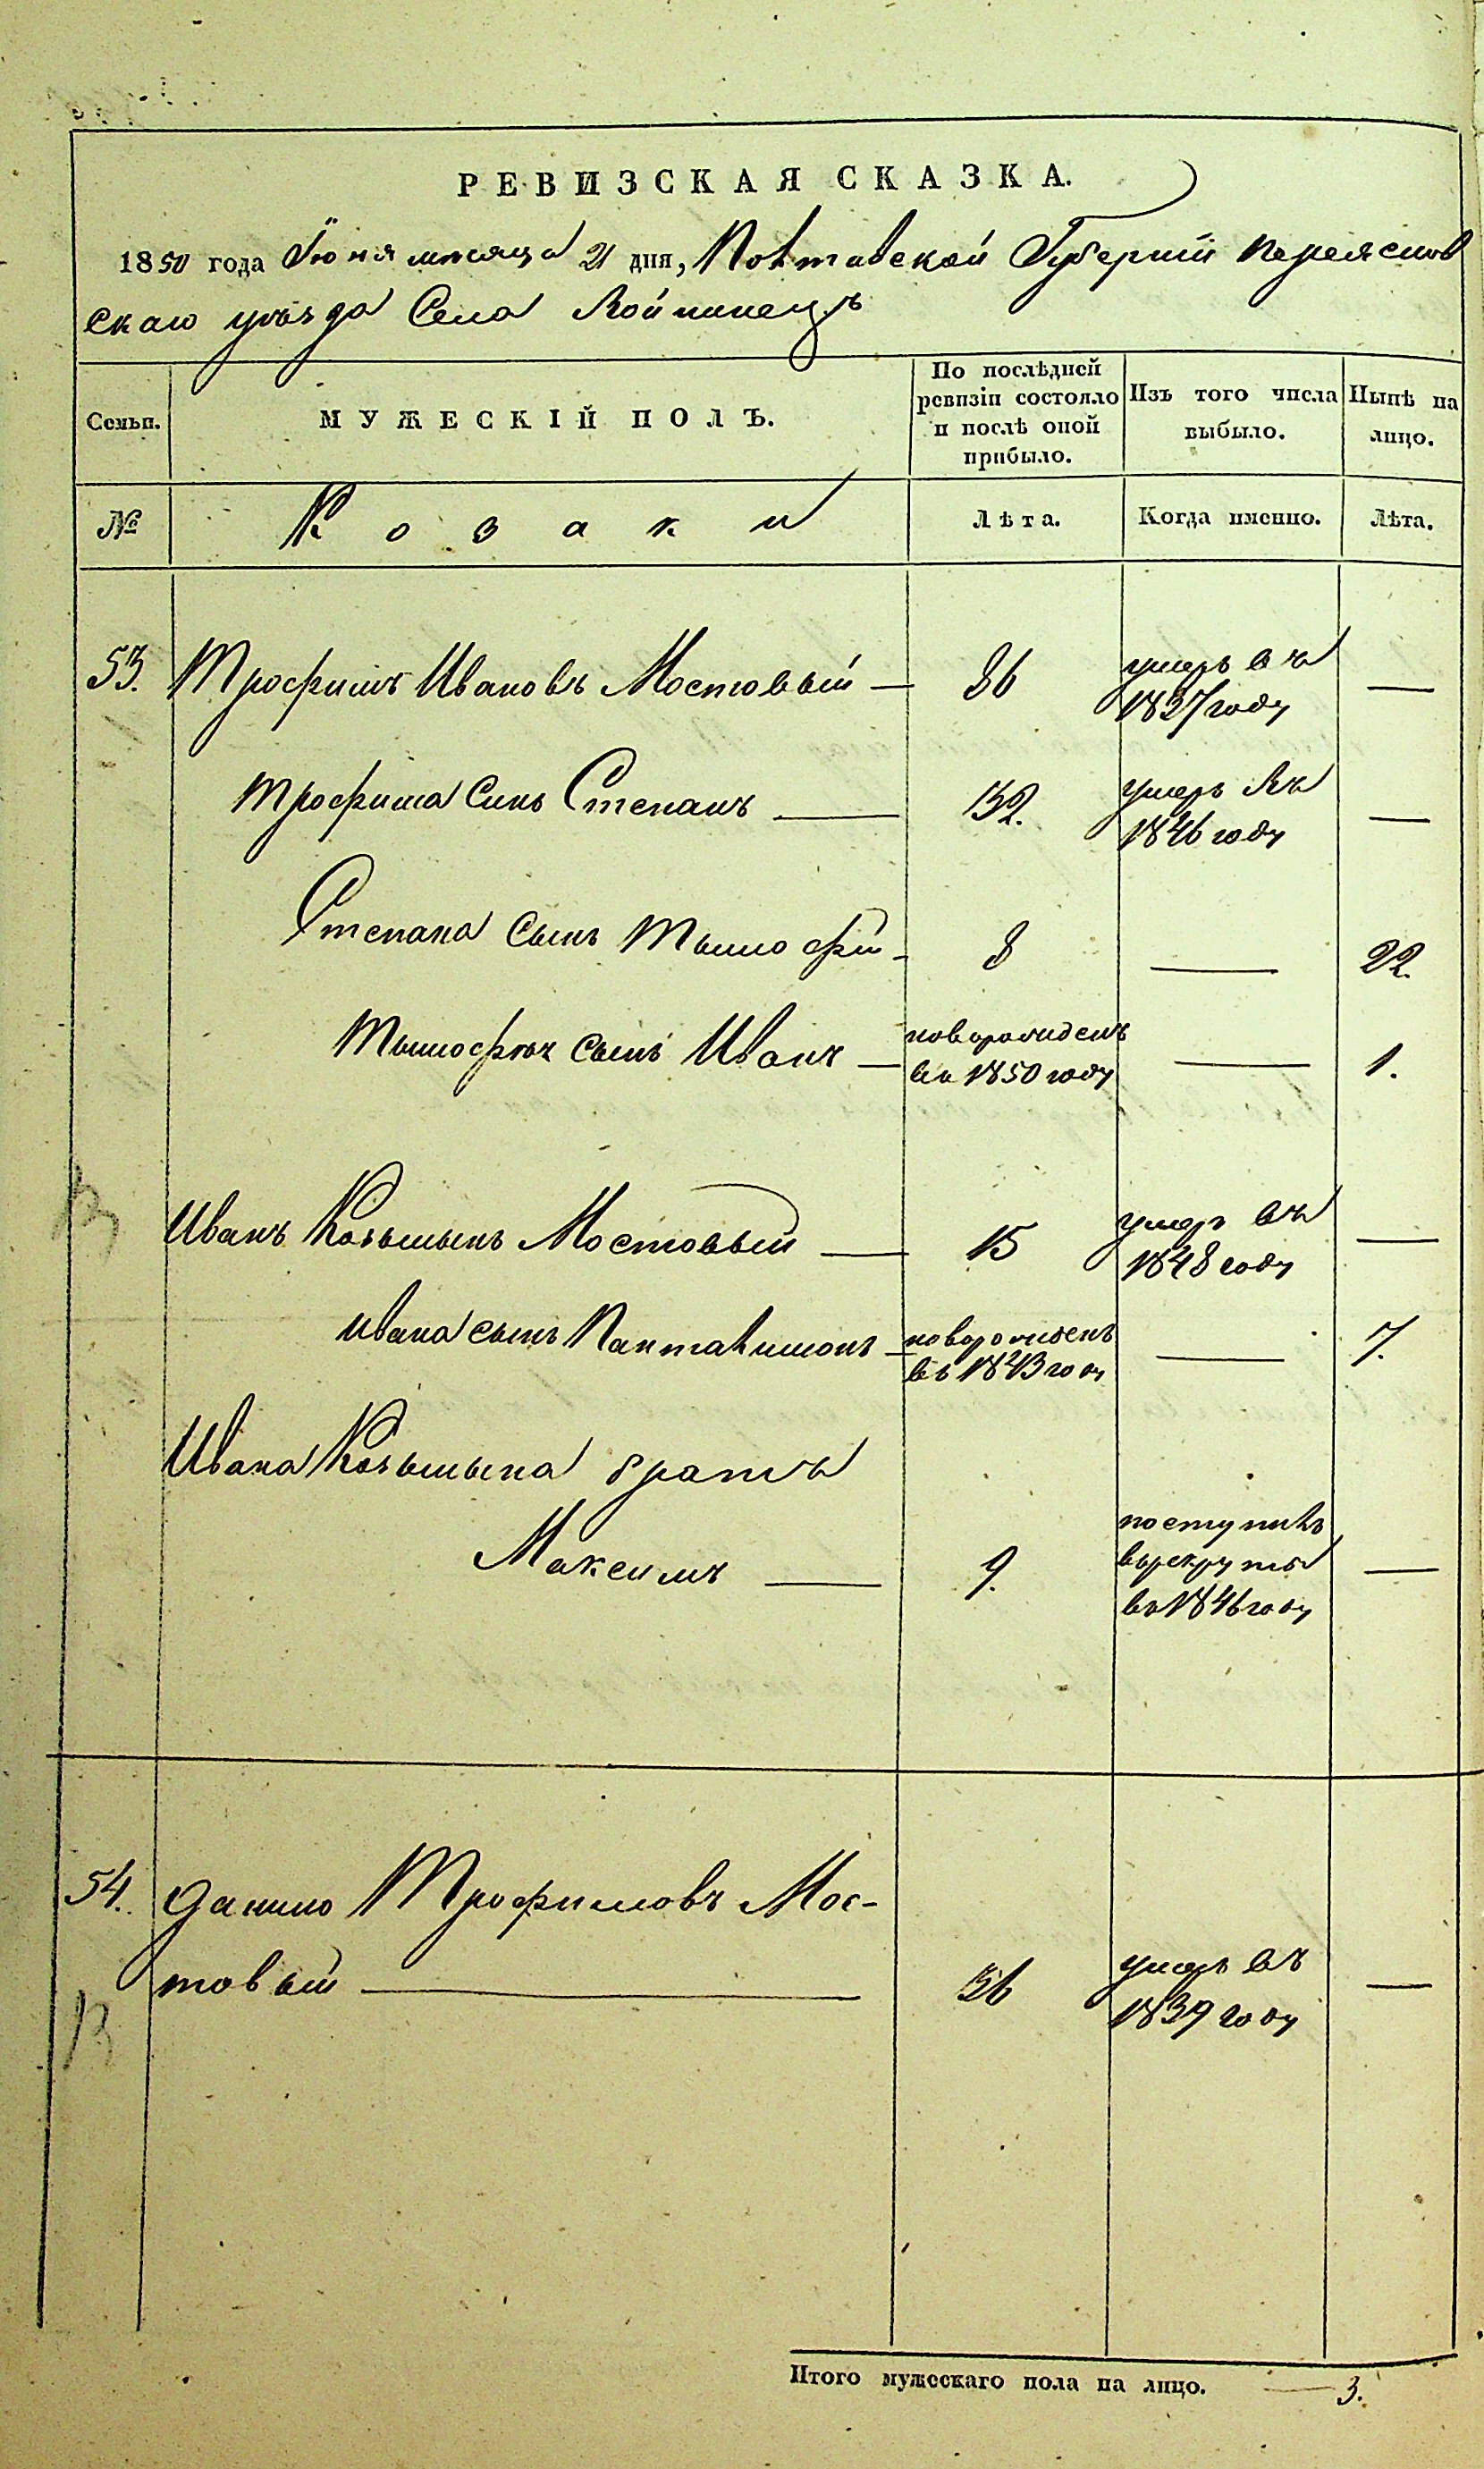 РЕВИЗСКАЯ СКАЗКА.
1850 года Іюня месяца 21 дня, Полтавской Губерніи Переяслов
скаго уѣзда Села Войтинецъ
Семьи.
МУЖЕСКІЙ ПОЛЪ.
По послѣдней
ревизіи состояло
и послѣ оной
прибыло.
Изъ того числа
выбыло.
Нынѣ на
лицо.
№
Козаки
Лѣта.
Когда именно.
Лѣта.
53. Трофимъ Ивановъ Мостовый — 86 умеръ въ —
1837 году
Трофима Синъ Степанъ — 32. умеръ въ —
1846 году
Степана Сынъ Тымофій - 8 — 22.
Тымофѣя Сынъ Иванъ — новорожденъ — 1.
въ 1850 году
Иванъ Козьминъ Мостовый — 15 умеръ въ —
1848 году
Ивана сынъ Панталимонъ — новорожденъ — 7.
въ 1843 году
Ивана Козьмына братъ
Максимъ — 9. поступилъ —
въ рекруты
въ 1846 году
54. Данило Трофимовъ Мос-
товый — 56 умеръ въ —
1839 году
Итого мужескаго пола на лицо. — 3.